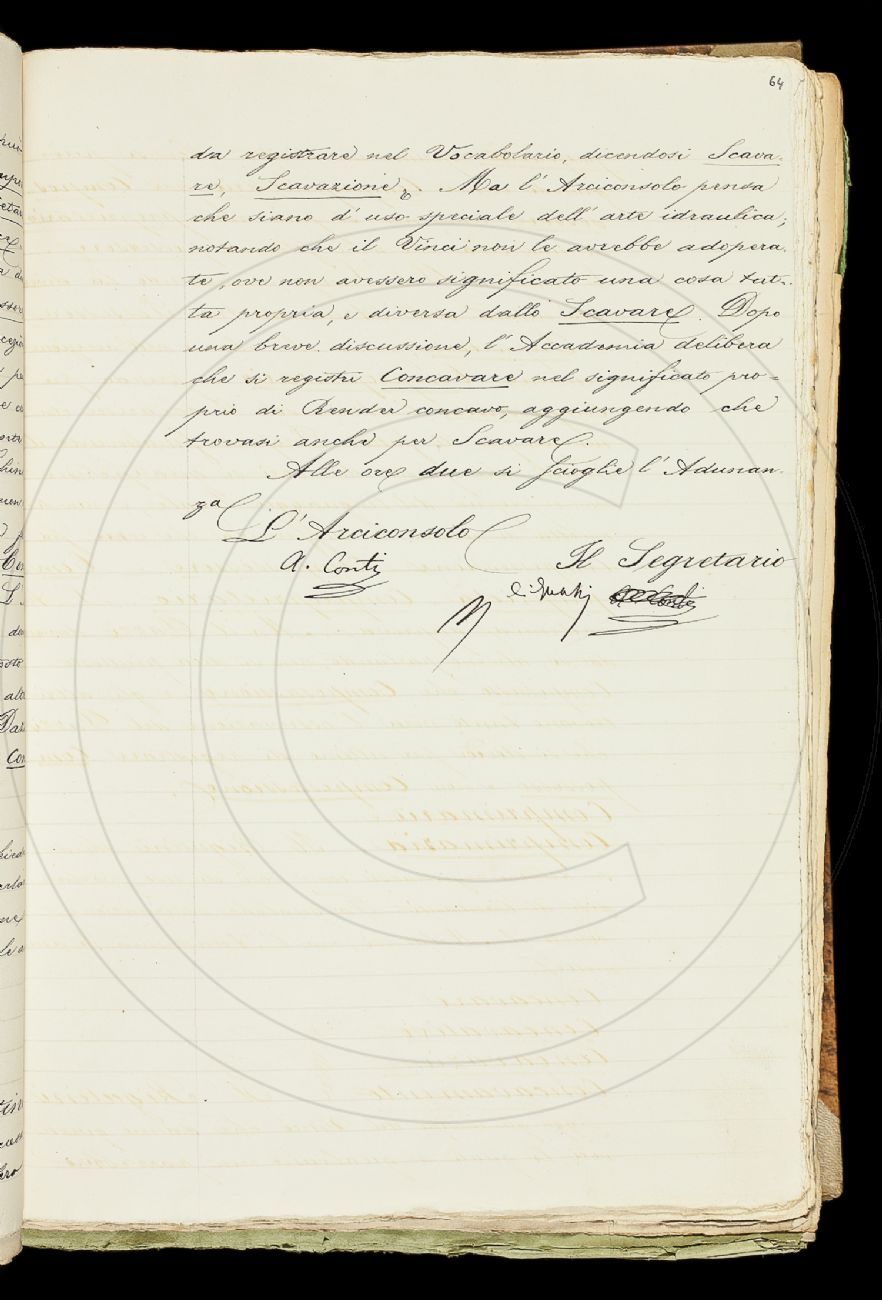 64
da registrare nel Vocabolario, dicendosi Scava-
re, Scavazione. Ma l' Arciconsolo pensa
che siano d' uso speciale dell' arte idraulica;
notando che il Vinci non le avrebbe adopera-
te, ove non avessero significato una cosa tut-
ta propria, e diversa dallo Scavare. Dopo
una breve discussione, l' Accademia delibera
che si registri Concavare nel significato pro-
prio di Render concavo, aggiungendo che
trovasi anche per Scavare.
Alle ore due si scioglie l' Adunan-
za
L' Arciconsolo
A. Conti
Il Segretario